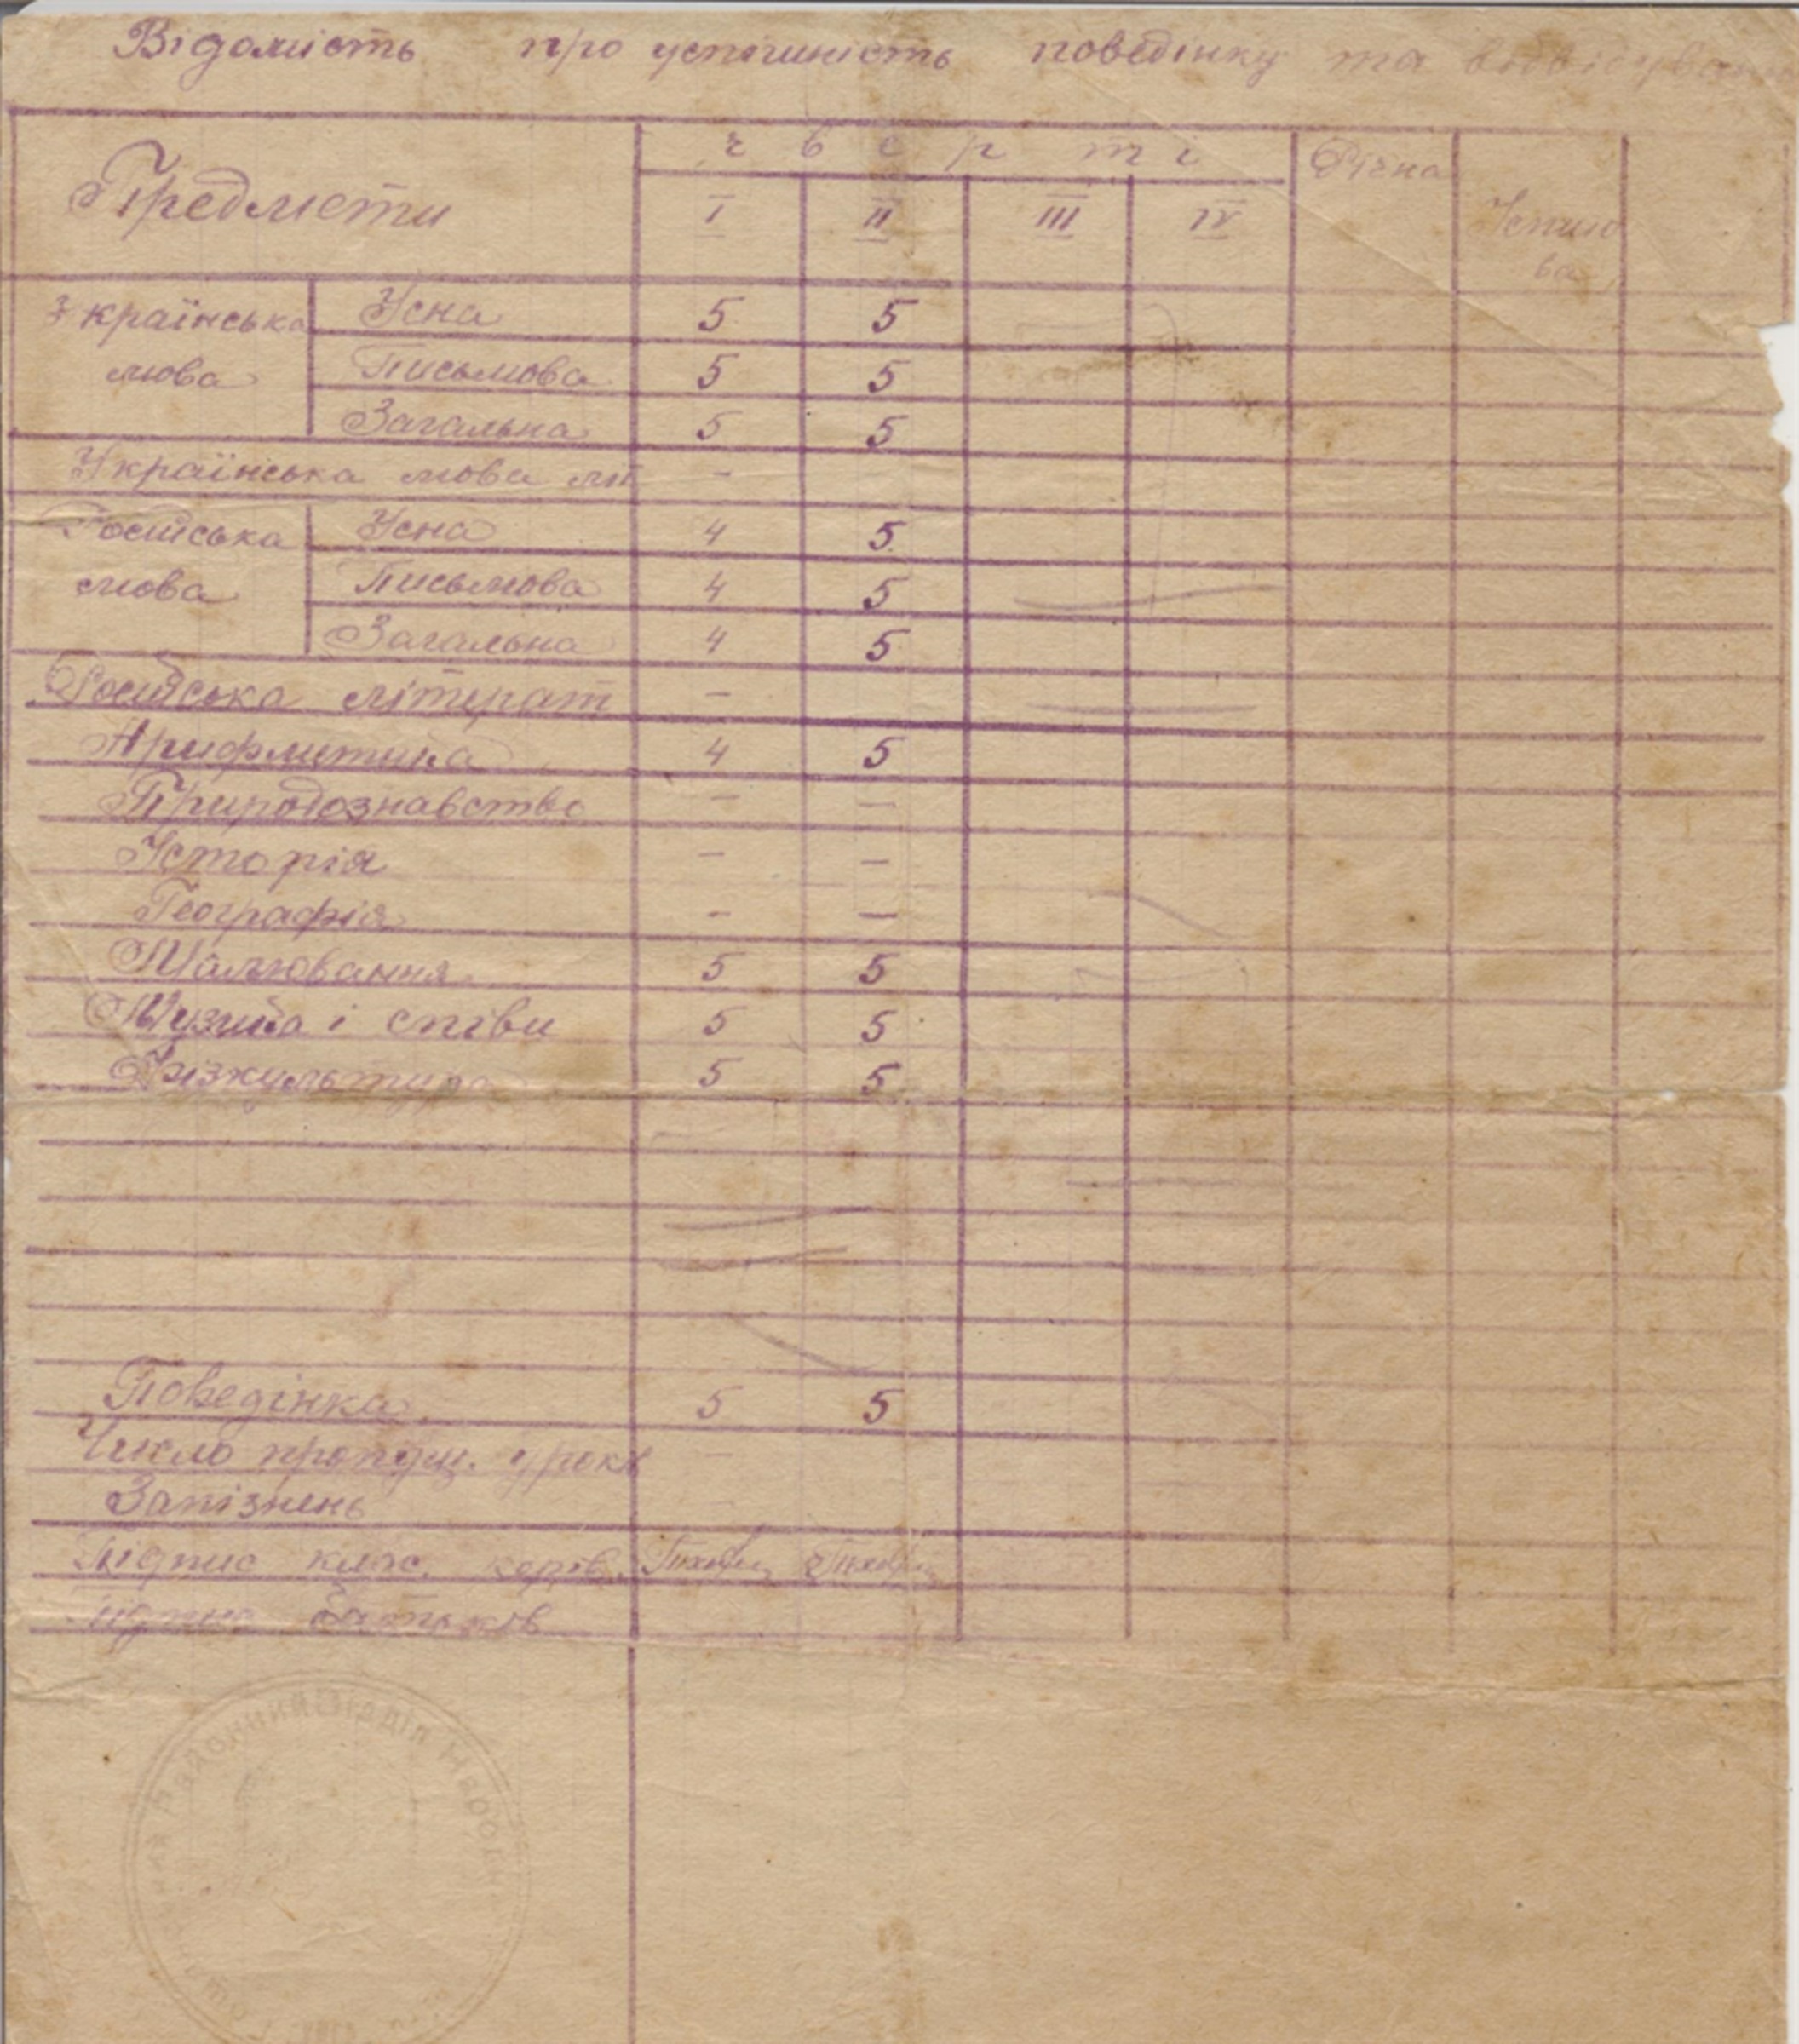 Відомість про успішність поведінку та відвідування
Предмети
чверті
Річна
I II III IV
Українська мова
Усна 5 5
Письмова 5 5
Загальна 5 5
Українська мова літ -
Російська мова
Усна 4 5
Письмова 4 5
Загальна 4 5
Російська літерат -
Арифметика 4 5
Природознавство - -
Історія - -
Географія - -
Малювання 5 5
Музика і співи 5 5
Фізкультура 5 5
Поведінка 5 5
Число пропущ. уроків -
Запізнень
Підпис клас. керів.
Підпис батьків
Районний Відділ Народн